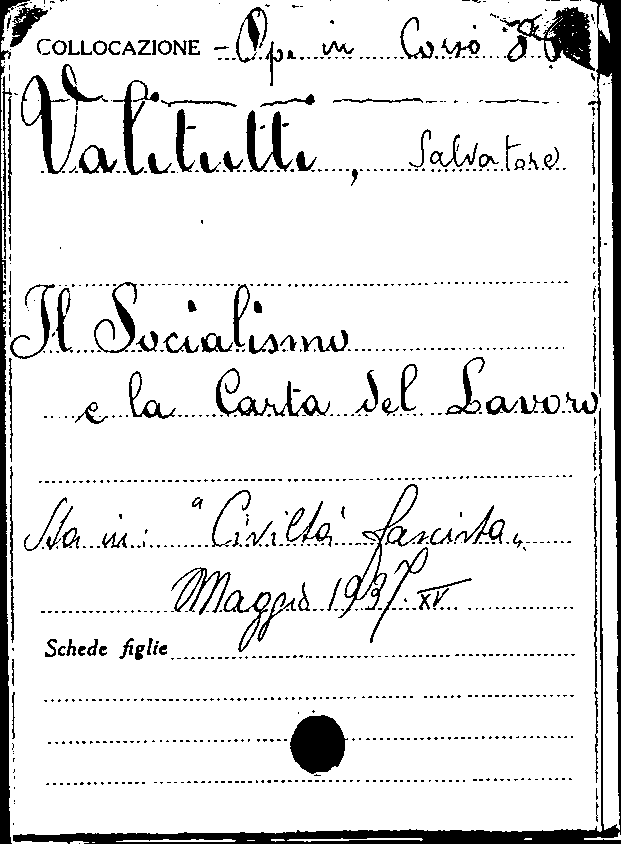 COLLOCAZIONE - Op. in Corso
Valitutti, Salvatore
Il Socialismo
e la Carta del Lavoro
Sta in: "Civiltà fascista"
Maggio 1937. XV
Schede figlie